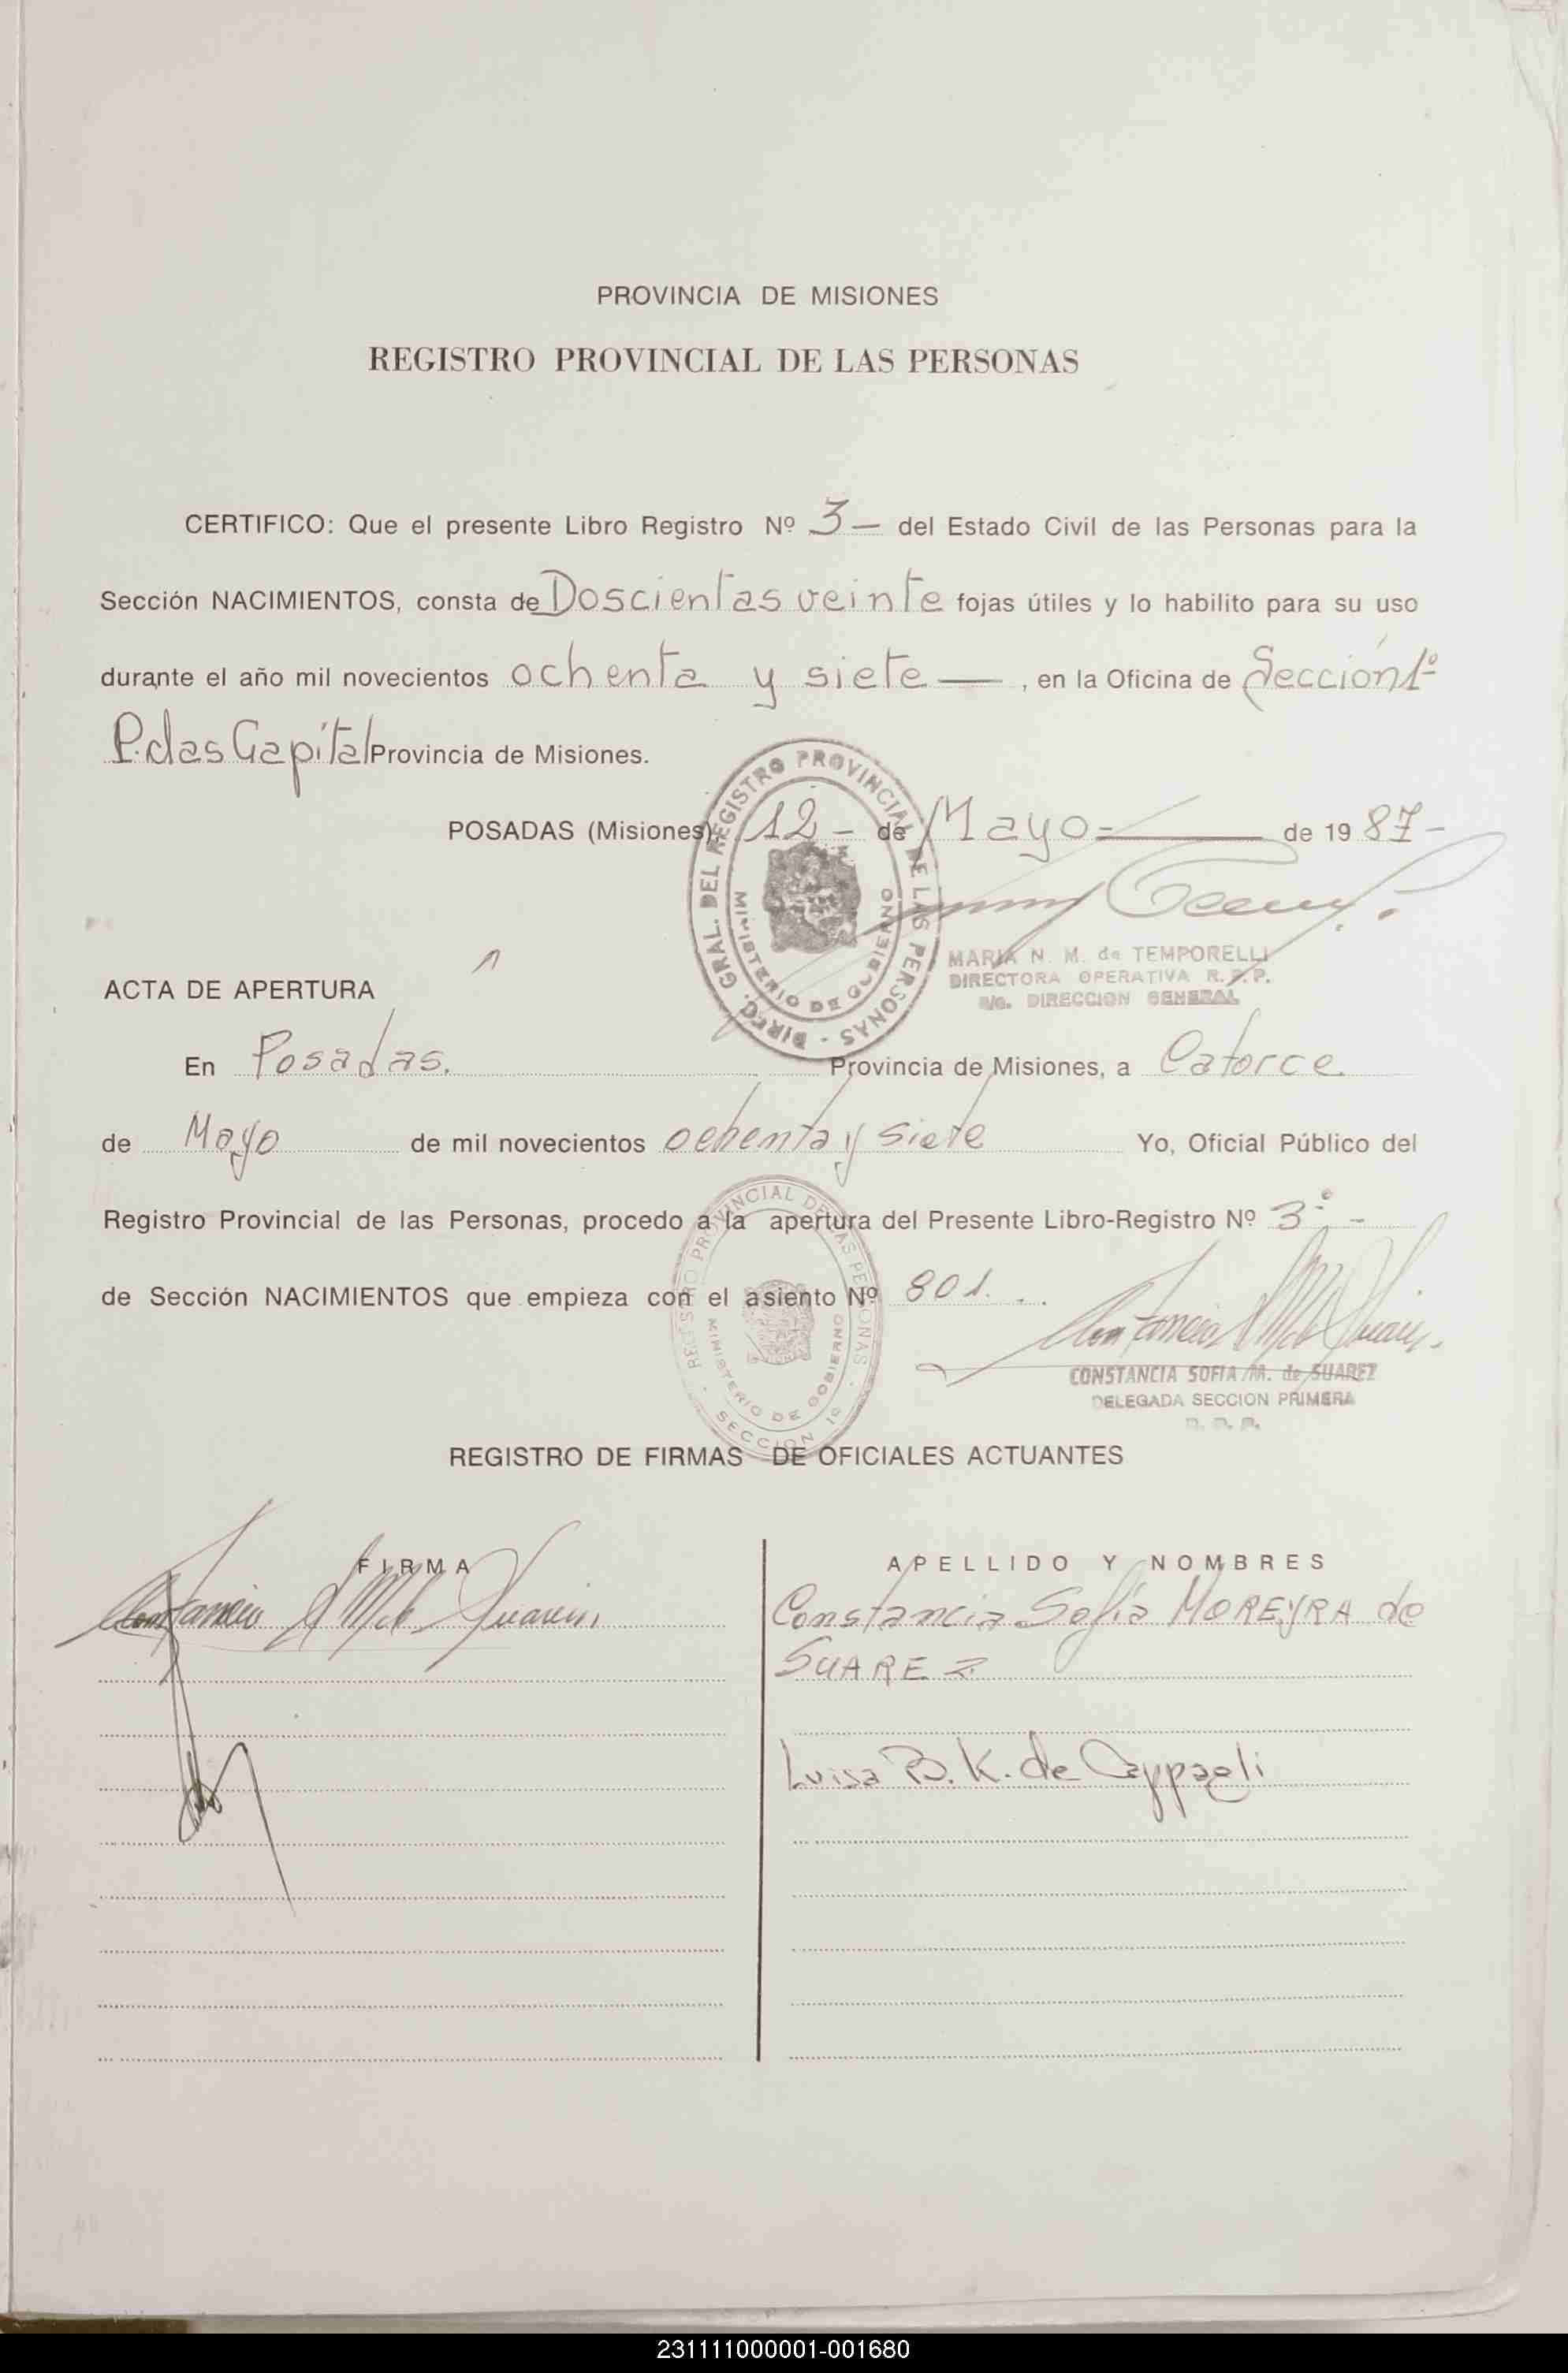 PROVINCIA DE MISIONES
REGISTRO PROVINCIAL DE LAS PERSONAS
CERTIFICO: Que el presente Libro Registro Nº 3 — del Estado Civil de las Personas para la
Sección NACIMIENTOS, consta de Doscientas veinte fojas útiles y lo habilito para su uso
durante el año mil novecientos ochenta y siete —, en la Oficina de Sección 1º
P.das Capital Provincia de Misiones.
POSADAS (Misiones), 12 - de Mayo - de 1987 -
DIREC. GRAL. DEL REGISTRO PROVINCIAL DE LAS PERSONAS -
MINISTERIO DE GOBIERNO
MARIA N. M. de TEMPORELLI
DIRECTORA OPERATIVA R. P. P.
a/c. DIRECCION GENERAL
ACTA DE APERTURA
En Posadas. Provincia de Misiones, a Catorce
de Mayo de mil novecientos ochenta y siete Yo, Oficial Público del
Registro Provincial de las Personas, procedo a la apertura del Presente Libro-Registro Nº 3º. -
de Sección NACIMIENTOS que empieza con el asiento Nº 801.
REGISTRO PROVINCIAL DE LAS PERSONAS -
MINISTERIO DE GOBIERNO
SECCION 1º
CONSTANCIA SOFIA M. de SUAREZ
DELEGADA SECCION PRIMERA
R. P. P.
REGISTRO DE FIRMAS DE OFICIALES ACTUANTES
FIRMA
APELLIDO Y NOMBRES
Constancia Sofía MOREYRA de
SUAREZ
Luisa B. K. de Cappaeli
231111000001-001680